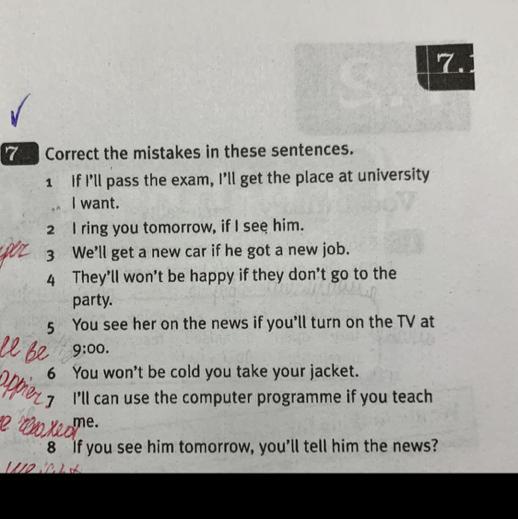 7.
7 Correct the mistakes in these sentences.
1 If I'll pass the exam, I'll get the place at university
I want.
2 I ring you tomorrow, if I see him.
3 We'll get a new car if he got a new job.
4 They'll won't be happy if they don't go to the
party.
5 You see her on the news if you'll turn on the TV at
9:00.
6 You won't be cold you take your jacket.
7 I'll can use the computer programme if you teach
me.
8 If you see him tomorrow, you'll tell him the news?